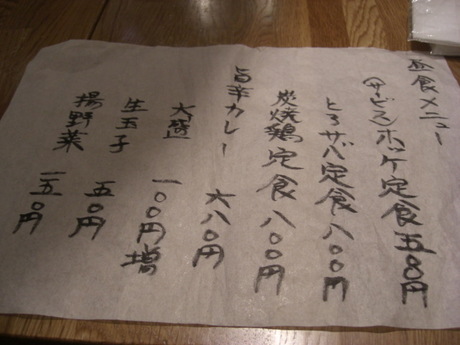 昼食メニュー
(サービス)ホッケ定食 五〇〇円
とろサバ定食 八〇〇円
炭焼鶏定食 八〇〇円
旨辛カレー 六八〇円
大盛 一〇〇円増
生玉子 五〇円
揚野菜 一五〇円